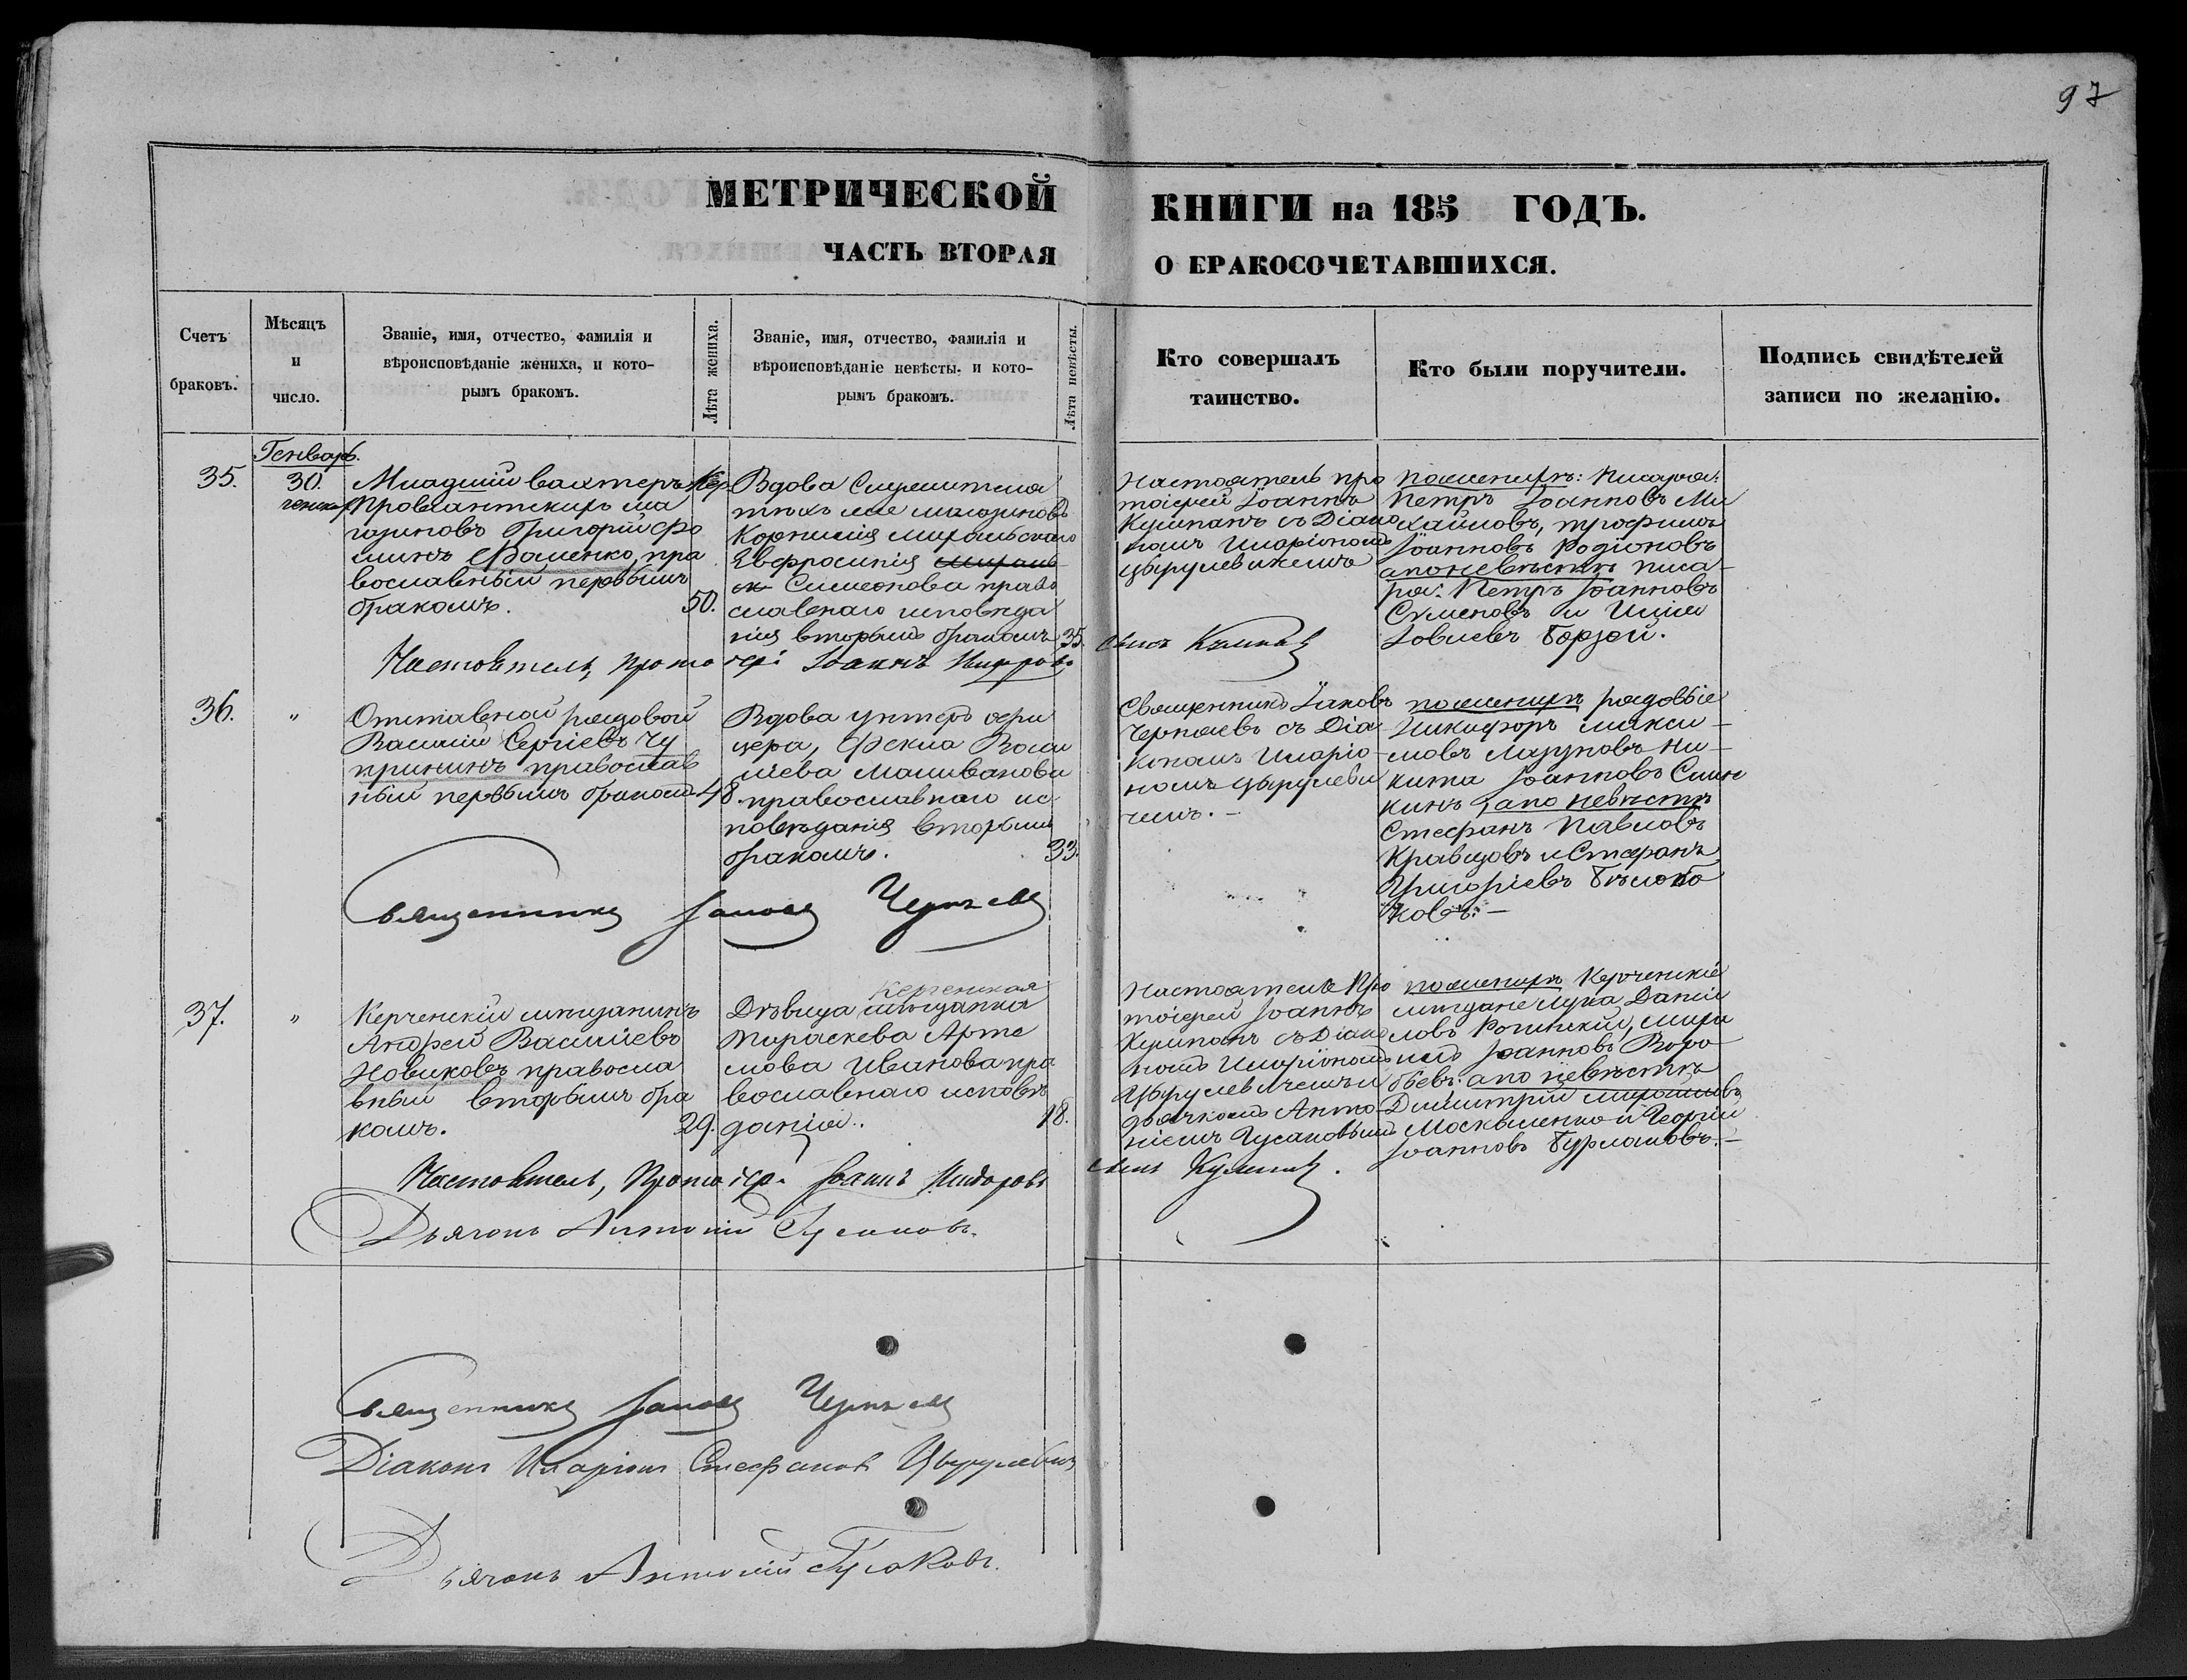 97
МЕТРИЧЕСКОЙ КНИГИ на 185 ГОДЪ.
ЧАСТЬ ВТОРАЯ О БРАКОСОЧЕТАВШИХСЯ.
Счетъ
браковъ.
Мѣсяцъ
и
число.
Званіе, имя, отчество, фамилія и
вѣроисповѣданіе жениха, и кото-
рымъ бракомъ.
Лѣта жениха.
Званіе, имя, отчество, фамилія и
вѣроисповѣданіе невѣсты, и кото-
рымъ бракомъ.
Лѣта невѣсты.
Кто совершалъ
таинство.
Кто были поручители.
Подпись свидѣтелей
записи по желанію.
Генварь.
35.
30.
Младшій вахтеръ Кер
ченскаго Провіантскихъ ма
газиновъ Григорій Фо
минъ Фоменко, пра
вославный первымъ
бракомъ.
50.
Вдова Служителя
тѣхъ же магазиновъ
Корнилія
Евфросинія
Симеонова право
славнаго исповѣда
нія вторымъ бракомъ
35.
Настоятель про
тоіерей Іоаннъ
Кумпанъ съ Діако
номъ Иларіономъ
Цырулевичемъ
по женихѣ: Писаря:
Петръ Іоанновъ Ми
хайловъ, Трофимъ
Іоанновъ Родіоновъ
а по невѣстѣ писа-
ря: Петръ Іоанновъ
Семеновъ и Илія
Іовлевъ Борзой.
Настоятель, Прото іер: Іоаннъ Сидоровъ
сынъ Кумпанъ
36.
"
Отставной рядовой
Василій Сергіевъ Чу
принъ православ
ный первымъ бракомъ
48.
Вдова унтеръ офи
цера, Фекла Васи
ліева Маливанова
православнаго ис
повѣданія вторымъ
бракомъ.
33.
Священникъ Іаковъ
Чернявъ съ Діа
кономъ Иларіо-
номъ Цырулеви
чемъ.-
по женихѣ рядовые
Никифоръ Макси-
мовъ Лазуновъ Ни-
кита Іоанновъ
а по невѣстѣ
Стефанъ Павловъ
Кравцовъ и Стефанъ
Григоріевъ Бѣлобо
ковъ.-
Священникъ Іаковъ Чернявъ
37.
"
Керченскій мѣщанинъ
Андрей Василіевъ
Новиковъ правосла
вный вторымъ бра
комъ.
29.
Керченская
Дѣвица мѣщанка
Параскева Арте
мова Иванова пра
вославнаго исповѣ
данія.
18.
Настоятель Про
тоіерей Іоаннъ
Кумпанъ съ Діако
номъ Иларіономъ
Цырулевичемъ и
дьячкомъ Анто-
ніемъ Гусаковымъ
по женихѣ Керченскіе
мѣщане Лука Даніи
ловъ Рогинскій, Миха
илъ Іоанновъ Воро
бьевъ: а по невѣстѣ
Димитрій Михайловъ
Москаленко и Георгій
Іоанновъ Бурлаковъ.-
Настоятель, Прото іер: Іоаннъ Сидоровъ
сынъ Кумпанъ.
Дьячокъ Антоній Гусаковъ.
Священникъ Іаковъ Чернявъ
Діаконъ Иларіонъ Стефановъ Цырулевичъ
Дьячокъ Антоній Гусаковъ.